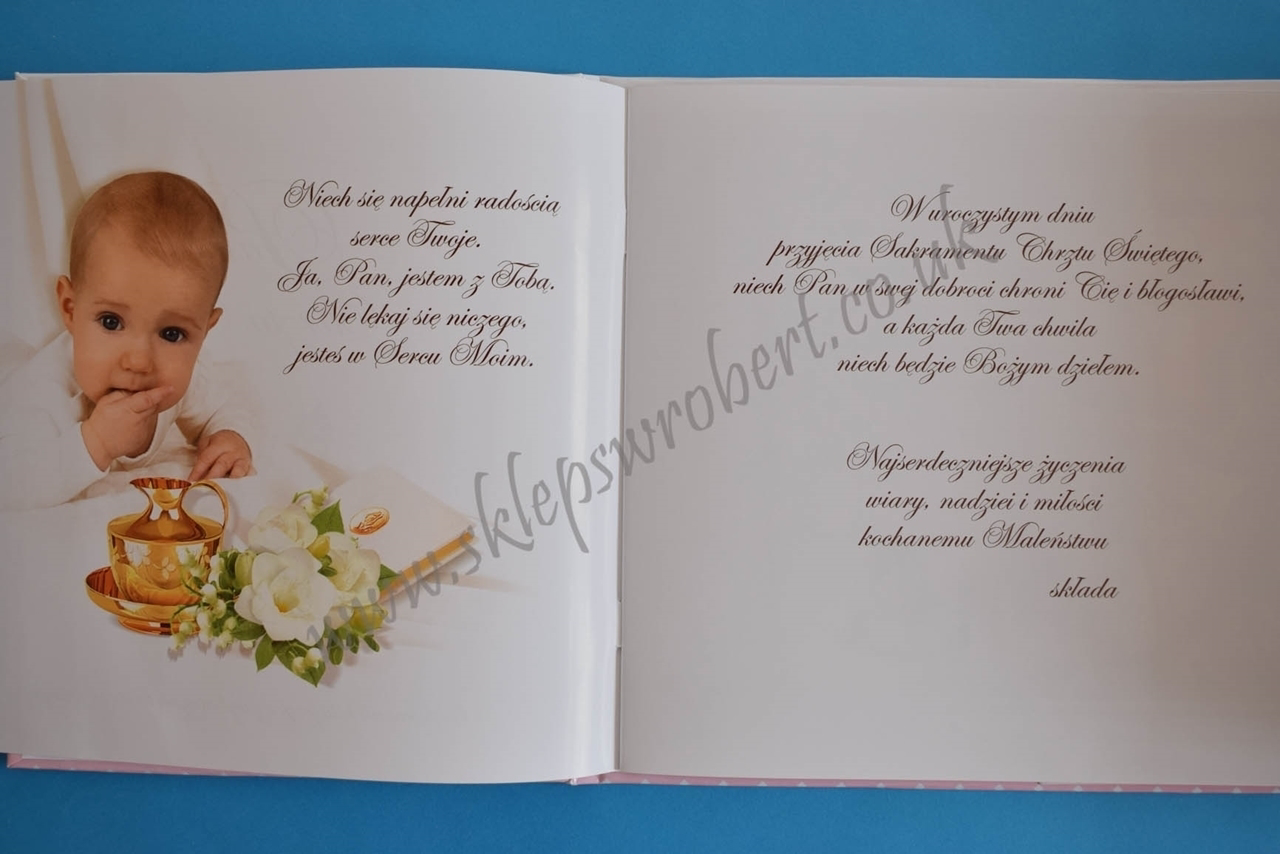 Niech się napełni radością
serce Twoje.
Ja, Pan, jestem z Tobą.
Nie lękaj się niczego,
jesteś w Sercu Moim.
W uroczystym dniu
przyjęcia Sakramentu Chrztu Świętego,
niech Pan w swej dobroci chroni Cię i błogosławi,
a każda Twa chwila
niech będzie Bożym dziełem.
Najserdeczniejsze życzenia
wiary, nadziei i miłości
kochanemu Maleństwu
składa
www.sklepswrobert.co.uk